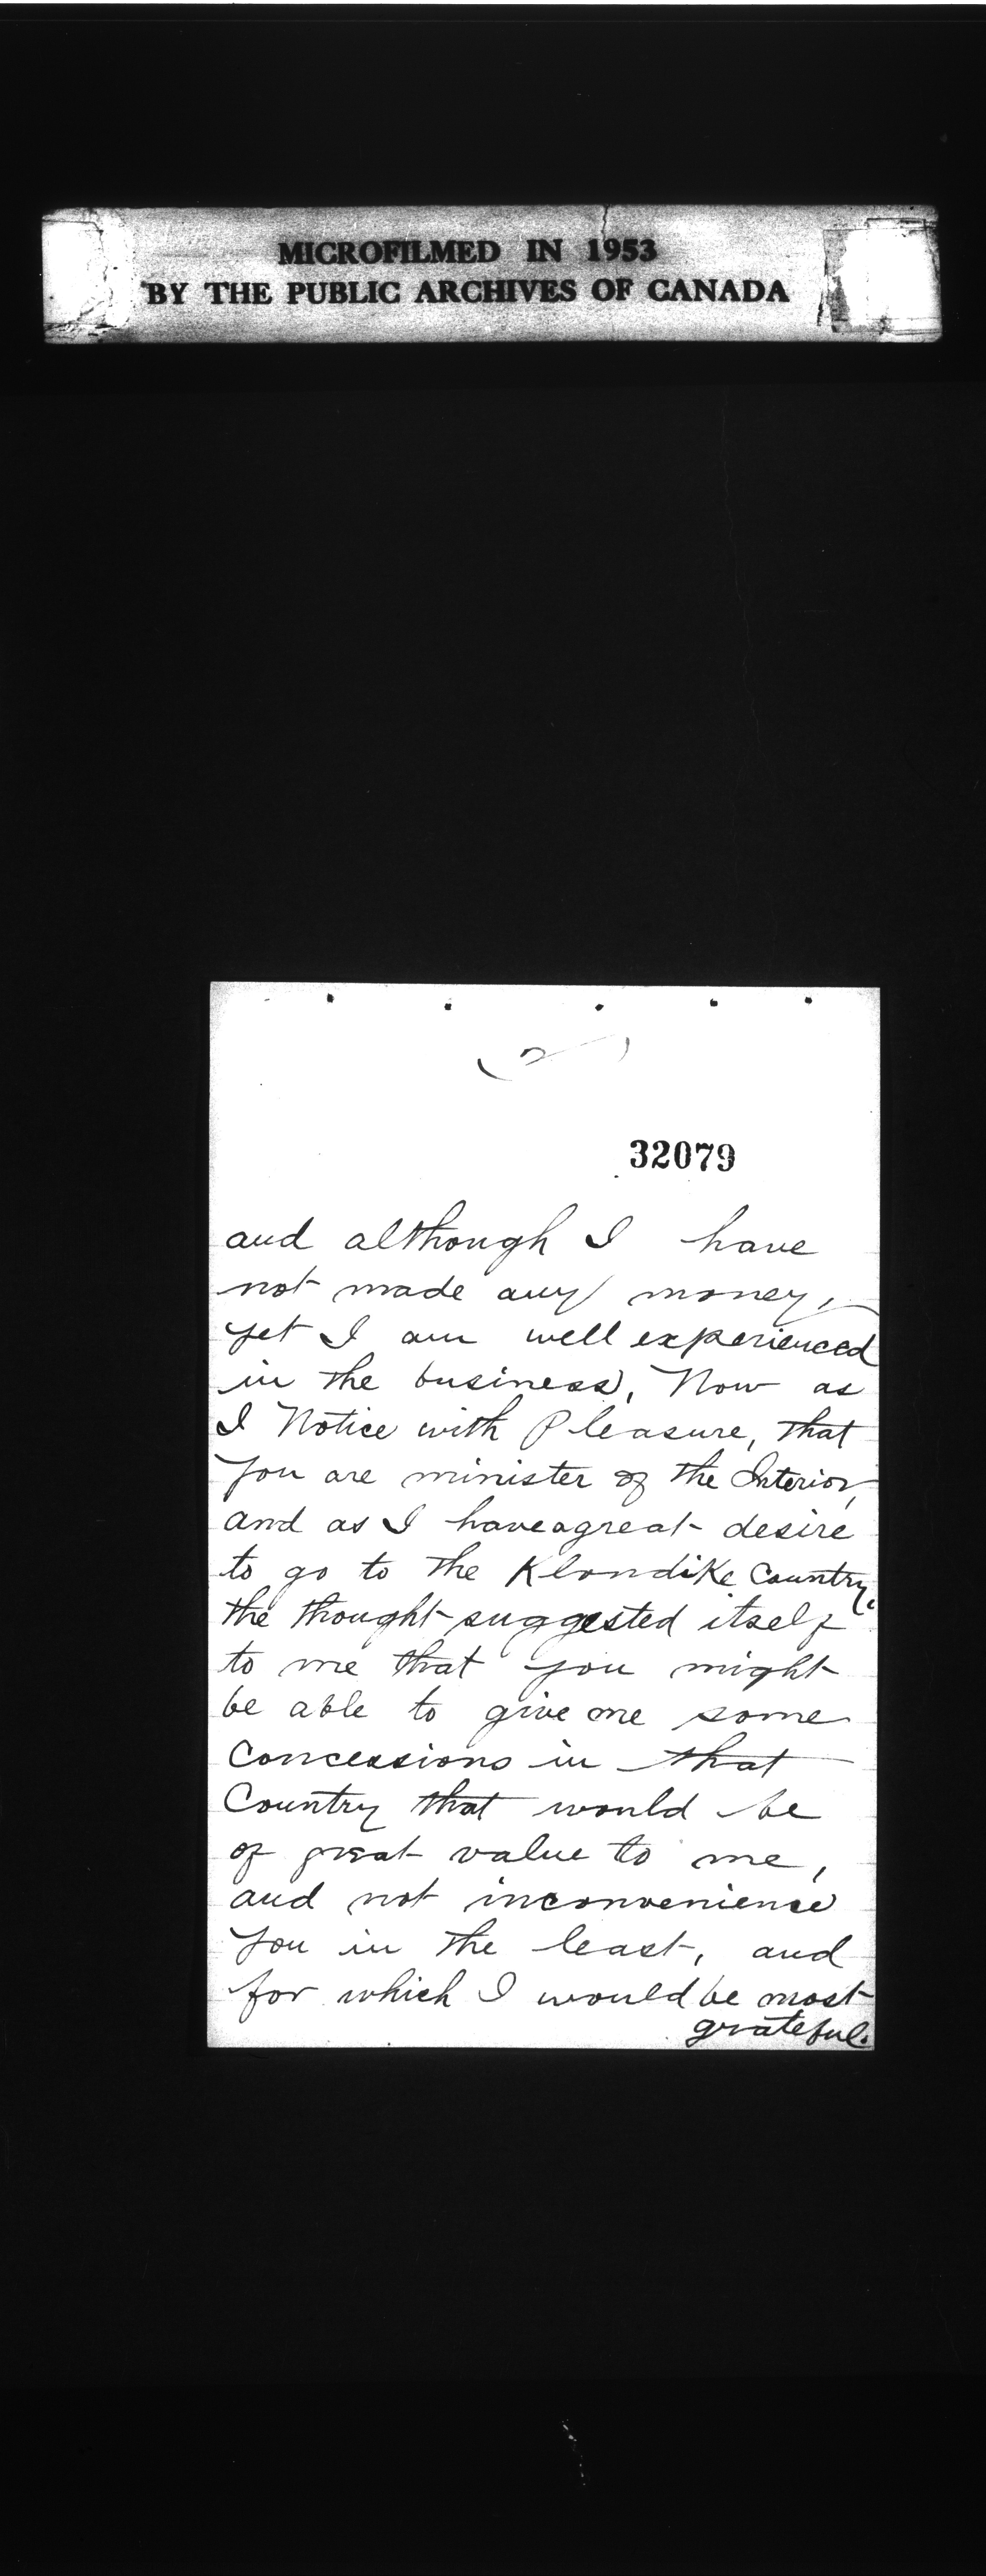 MICROFILMED IN 1953
BY THE PUBLIC ARCHIVES OF CANADA
(2)
32079
and although I have
not made any money,
yet I am well experienced
in the business, Now as
I Notice with Pleasure, that
you are minister of the Interior,
and as I have a great desire
to go to the Klondike Country,
the thought suggested itself
to me that you might
be able to give me some
Concessions in that
Country that would be
of great value to me,
and not inconvenience
you in the least, and
for which I would be most
grateful.